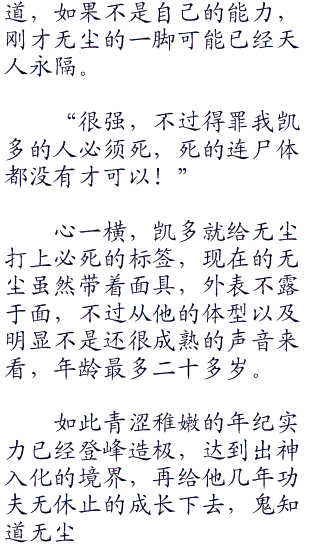 道，如果不是自己的能力，
刚才无尘的一脚可能已经天
人永隔。
“很强，不过得罪我凯
多的人必须死，死的连尸体
都没有才可以！”
心一横，凯多就给无尘
打上必死的标签，现在的无
尘虽然带着面具，外表不露
于面，不过从他的体型以及
明显不是还很成熟的声音来
看，年龄最多二十多岁。
如此青涩稚嫩的年纪实
力已经登峰造极，达到出神
入化的境界，再给他几年功
夫无休止的成长下去，鬼知
道无尘